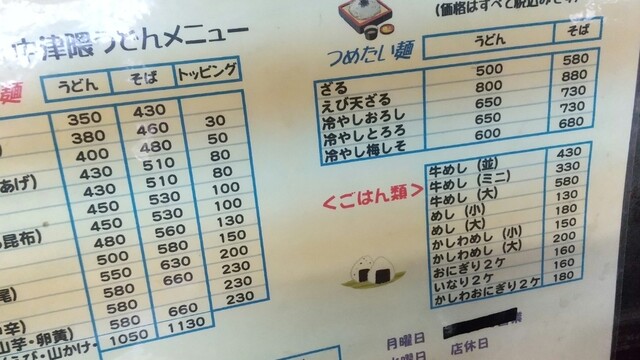 中津隈うどんメニュー
麺
うどん そば トッピング
350 430
380 460 30
400 480 50
あげ） 430 510 80
430 510 80
450 530 100
昆布） 450 530 100
480 560 130
500 580 150
550 630 200
尾） 580 660 230
辛） 580 660 230
山芋・卵黄） 1050 1130 230
び・山かけ・
（価格はすべて税込みです）
つめたい麺 うどん そば
ざる 500 580
えび天ざる 800 880
冷やしおろし 650 730
冷やしとろろ 650 730
冷やし梅しそ 600 680
＜ごはん類＞
牛めし（並） 430
牛めし（ミニ） 330
牛めし（大） 580
めし（小） 130
めし（大） 180
かしわめし（小） 150
かしわめし（大） 200
おにぎり２ケ 160
いなり２ケ 160
かしわおにぎり２ケ 180
月曜日
店休日